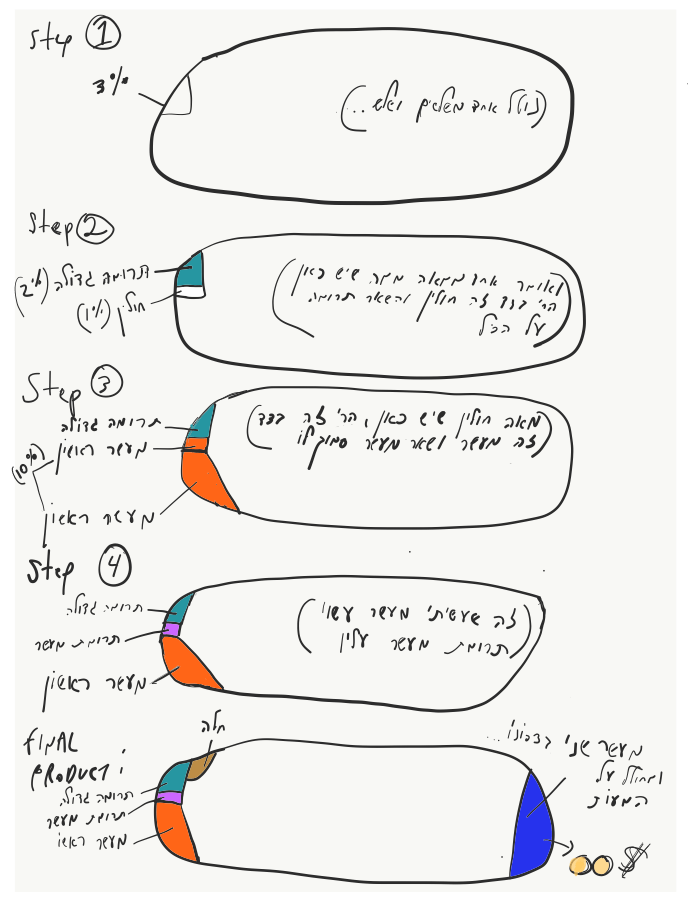 Step 1
3%
(נוטל אחד משלשים ושלש...)
Step 2
תרומה גדולה (2%)
חולין (1%)
(ואומר אחד ממאה ממה שיש כאן
הרי בצד זה חולין והשאר תרומה
על הכל)
Step 3
תרומה גדולה
מעשר ראשון
(10%)
מעשר ראשון
(מאה חולין שיש כאן, הרי זה בצד
זה מעשר ושאר מעשר סמוך לו)
Step 4
תרומה גדולה
תרומת מעשר
מעשר ראשון
(זה שעשיתי מעשר עשוי
תרומת מעשר עליו)
FINAL
PRODUCT:
חלה
תרומה גדולה
תרומת מעשר
מעשר ראשון
מעשר שני בצפונו...
ומחולל על
המעות
$